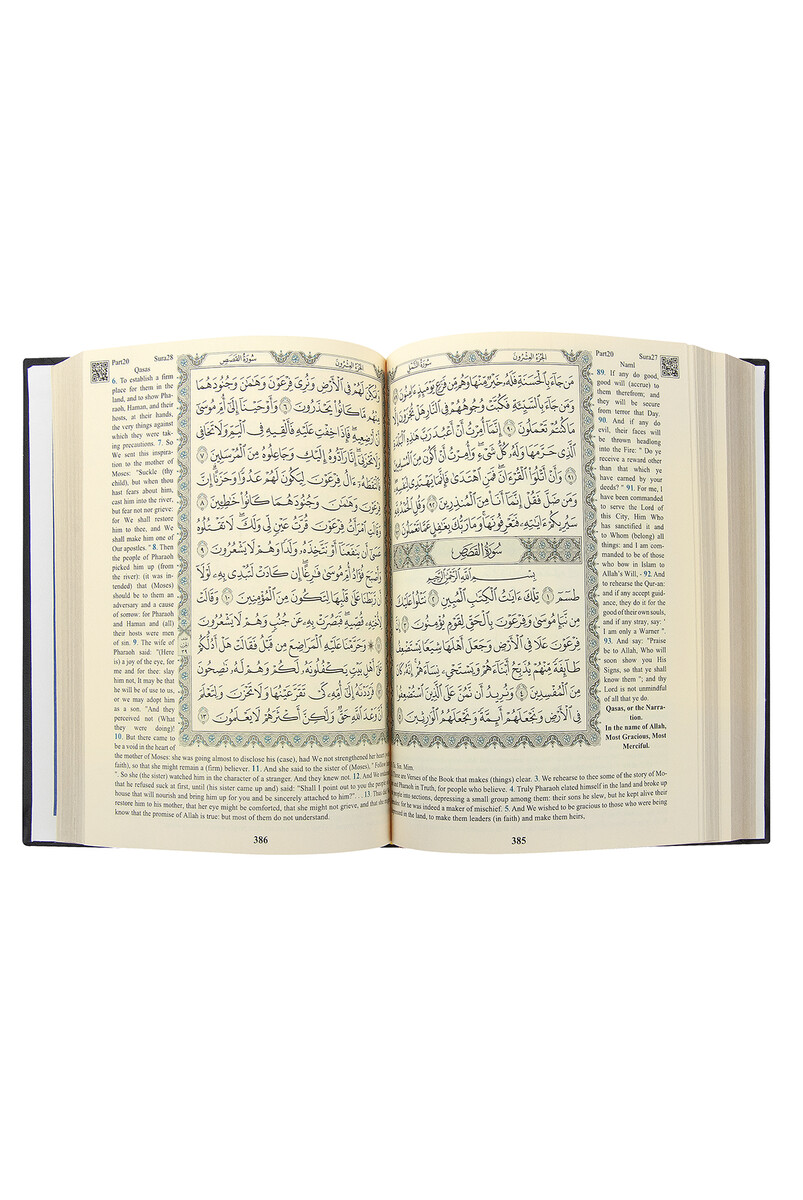 Part20 Sura27
Naml
89. If any do good,
good will (accrue) to
them therefrom; and
they will be secure
from terror that Day.
90. And if any do
evil, their faces will
be thrown headlong
into the Fire: " Do ye
receive a reward other
than that which ye
have earned by your
deeds? " 91. For me, I
have been commanded
to serve the Lord of
this City, Him Who
has sanctified it and
to Whom (belong) all
things: and I am com-
manded to be of those
who bow in Islam to
Allah's Will, - 92. And
to rehearse the Qur-an:
and if any accept guid-
ance, they do it for the
good of their own souls,
and if any stray, say: '
I am only a Warner ".
93. And say: "Praise
be to Allah, Who will
soon show you His
Signs, so that ye shall
know them "; and thy
Lord is not unmindful
of all that ye do.
Qasas, or the Narra-
tion.
In the name of Allah,
Most Gracious, Most
Merciful.
الجزء العشرون سورة النمل
مَن جَاءَ بِالْحَسَنَةِ فَلَهُ خَيْرٌ مِّنْهَا وَهُم مِّن فَزَعٍ يَوْمَئِذٍ ءَامِنُونَ
وَمَن جَاءَ بِالسَّيِّئَةِ فَكُبَّتْ وُجُوهُهُمْ فِي النَّارِ هَلْ تُجْزَوْنَ إِلَّا
مَا كُنتُمْ تَعْمَلُونَ ٩٠ إِنَّمَا أُمِرْتُ أَنْ أَعْبُدَ رَبَّ هَٰذِهِ الْبَلْدَةِ
الَّذِي حَرَّمَهَا وَلَهُ كُلُّ شَيْءٍ وَأُمِرْتُ أَنْ أَكُونَ مِنَ الْمُسْلِمِينَ
٩١ وَأَنْ أَتْلُوَا الْقُرْءَانَ فَمَنِ اهْتَدَىٰ فَإِنَّمَا يَهْتَدِي لِنَفْسِهِ
وَمَن ضَلَّ فَقُلْ إِنَّمَا أَنَا مِنَ الْمُنذِرِينَ ٩٢ وَقُلِ الْحَمْدُ
سَيُرِيكُمْ ءَايَٰتِهِ فَتَعْرِفُونَهَا وَمَا رَبُّكَ بِغَٰفِلٍ عَمَّا تَعْمَلُونَ
سورة القصص
بِسْمِ اللَّهِ الرَّحْمَٰنِ الرَّحِيمِ
طسٓمٓ ١ تِلْكَ ءَايَٰتُ الْكِتَٰبِ الْمُبِينِ ٢ نَتْلُوا عَلَيْكَ
مِن نَّبَإِ مُوسَىٰ وَفِرْعَوْنَ بِالْحَقِّ لِقَوْمٍ يُؤْمِنُونَ ٣
فِرْعَوْنَ عَلَا فِي الْأَرْضِ وَجَعَلَ أَهْلَهَا شِيَعًا يَسْتَضْعِفُ
طَائِفَةً مِّنْهُمْ يُذَبِّحُ أَبْنَاءَهُمْ وَيَسْتَحْيِ نِسَاءَهُمْ إِنَّهُ كَانَ
مِنَ الْمُفْسِدِينَ ٤ وَنُرِيدُ أَن نَّمُنَّ عَلَى الَّذِينَ اسْتُضْعِفُوا
فِي الْأَرْضِ وَنَجْعَلَهُمْ أَئِمَّةً وَنَجْعَلَهُمُ الْوَٰرِثِينَ ٥
Sin. Mim.
are Verses of the Book that makes (things) clear. 3. We rehearse to thee some of the story of Mo-
and Pharaoh in Truth, for people who believe. 4. Truly Pharaoh elated himself in the land and broke up
people into sections, depressing a small group among them: their sons he slew, but he kept alive their
for he was indeed a maker of mischief. 5. And We wished to be gracious to those who were being
in the land, to make them leaders (in faith) and make them heirs,
385
Part20 Sura28
Qasas
6. To establish a firm
place for them in the
land, and to show Pha-
raoh, Haman, and their
hosts, at their hands,
the very things against
which they were tak-
ing precautions. 7. So
We sent this inspira-
tion to the mother of
Moses: "Suckle (thy
child), but when thou
hast fears about him,
cast him into the river,
but fear not nor grieve:
for We shall restore
him to thee, and We
shall make him one of
Our apostles. " 8. Then
the people of Pharaoh
picked him up (from
the river): (it was in-
tended) that (Moses)
should be to them an
adversary and a cause
of sorrow: for Pharaoh
and Haman and (all)
their hosts were men
of sin. 9. The wife of
Pharaoh said: "(Here
is) a joy of the eye, for
me and for thee: slay
him not, It may be that
he will be of use to us,
or we may adopt him
as a son. "And they
perceived not (What
they were doing)!
10. But there came to
be a void in the heart of
سورة القصص الجزء العشرون
وَنُمَكِّنَ لَهُمْ فِي الْأَرْضِ وَنُرِيَ فِرْعَوْنَ وَهَٰمَٰنَ وَجُنُودَهُمَا
مِنْهُم مَّا كَانُوا يَحْذَرُونَ ٦ وَأَوْحَيْنَا إِلَىٰ أُمِّ مُوسَىٰ
أَنْ أَرْضِعِيهِ فَإِذَا خِفْتِ عَلَيْهِ فَأَلْقِيهِ فِي الْيَمِّ وَلَا تَخَافِي
وَلَا تَحْزَنِي إِنَّا رَادُّوهُ إِلَيْكِ وَجَاعِلُوهُ مِنَ الْمُرْسَلِينَ ٧
فَالْتَقَطَهُ ءَالُ فِرْعَوْنَ لِيَكُونَ لَهُمْ عَدُوًّا وَحَزَنًا إِنَّ
فِرْعَوْنَ وَهَٰمَٰنَ وَجُنُودَهُمَا كَانُوا خَٰطِـِٔينَ ٨
وَقَالَتِ امْرَأَتُ فِرْعَوْنَ قُرَّتُ عَيْنٍ لِّي وَلَكَ لَا تَقْتُلُوهُ
عَسَىٰ أَن يَنفَعَنَا أَوْ نَتَّخِذَهُ وَلَدًا وَهُمْ لَا يَشْعُرُونَ ٩
وَأَصْبَحَ فُؤَادُ أُمِّ مُوسَىٰ فَٰرِغًا إِن كَادَتْ لَتُبْدِي بِهِ لَوْلَا
أَن رَّبَطْنَا عَلَىٰ قَلْبِهَا لِتَكُونَ مِنَ الْمُؤْمِنِينَ ١٠ وَقَالَتْ
لِأُخْتِهِ قُصِّيهِ فَبَصُرَتْ بِهِ عَن جُنُبٍ وَهُمْ لَا يَشْعُرُونَ
١١ ۞ وَحَرَّمْنَا عَلَيْهِ الْمَرَاضِعَ مِن قَبْلُ فَقَالَتْ هَلْ أَدُلُّكُمْ
عَلَىٰ أَهْلِ بَيْتٍ يَكْفُلُونَهُ لَكُمْ وَهُمْ لَهُ نَٰصِحُونَ
١٢ فَرَدَدْنَٰهُ إِلَىٰ أُمِّهِ كَيْ تَقَرَّ عَيْنُهَا وَلَا تَحْزَنَ وَلِتَعْلَمَ
أَنَّ وَعْدَ اللَّهِ حَقٌّ وَلَٰكِنَّ أَكْثَرَهُمْ لَا يَعْلَمُونَ ١٣
the mother of Moses: she was going almost to disclose his (case), had We not strengthened her heart
faith), so that she might remain a (firm) believer. 11. And she said to the sister of (Moses)," Follow
". So she (the sister) watched him in the character of a stranger. And they knew not. 12. And We
that he refused suck at first, until (his sister came up and) said: "Shall I point out to you the people
house that will nourish and bring him up for you and be sincerely attached to him?". . . 13. Thus did
restore him to his mother, that her eye might be comforted, that she might not grieve, and that she might
know that the promise of Allah is true: but most of them do not understand.
386